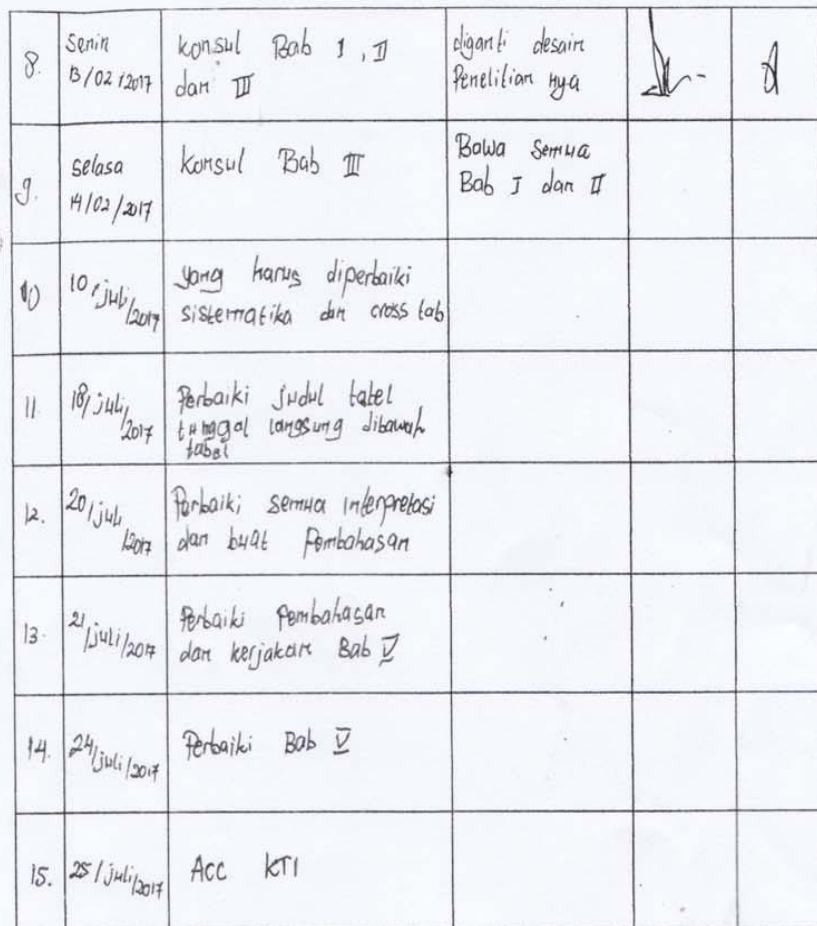 8.
Senin
13/02/2017
konsul Bab I, II
dan III
diganti desain
Penelitian nya
9.
selasa
14/02/2017
Konsul Bab III
Bawa semua
Bab I dan II
10
10/juli/2017
yang harus diperbaiki
sistematika dan cross tab
11.
18/juli/2017
Perbaiki judul tabel
tunggal langsung dibawah
tabel
12.
20/juli/2017
Perbaiki semua interpretasi
dan buat Pembahasan
13.
21/juli/2017
Perbaiki Pembahasan
dan kerjakan Bab V
14.
24/juli/2017
Perbaiki Bab V
15.
25/juli/2017
Acc KTI